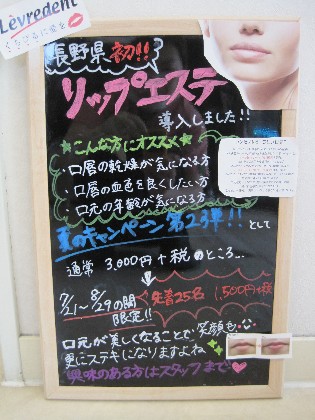 Levredent
くちびるに愛を
長野県 初!!
リップエステ
導入しました!!
☆こんな方にオススメ☆
・口唇の乾燥が気になる方
・口唇の血色を良くしたい方
・口元の年齢が気になる方
夏のキャンペーン第2弾!!として
通常 3,000円+税のところ…
7/21〜8/29の間 先着25名 1,500円+税
限定!!
口元が美しくなることで笑顔も
更にステキになりますよね
興味のある方はスタッフまで♥